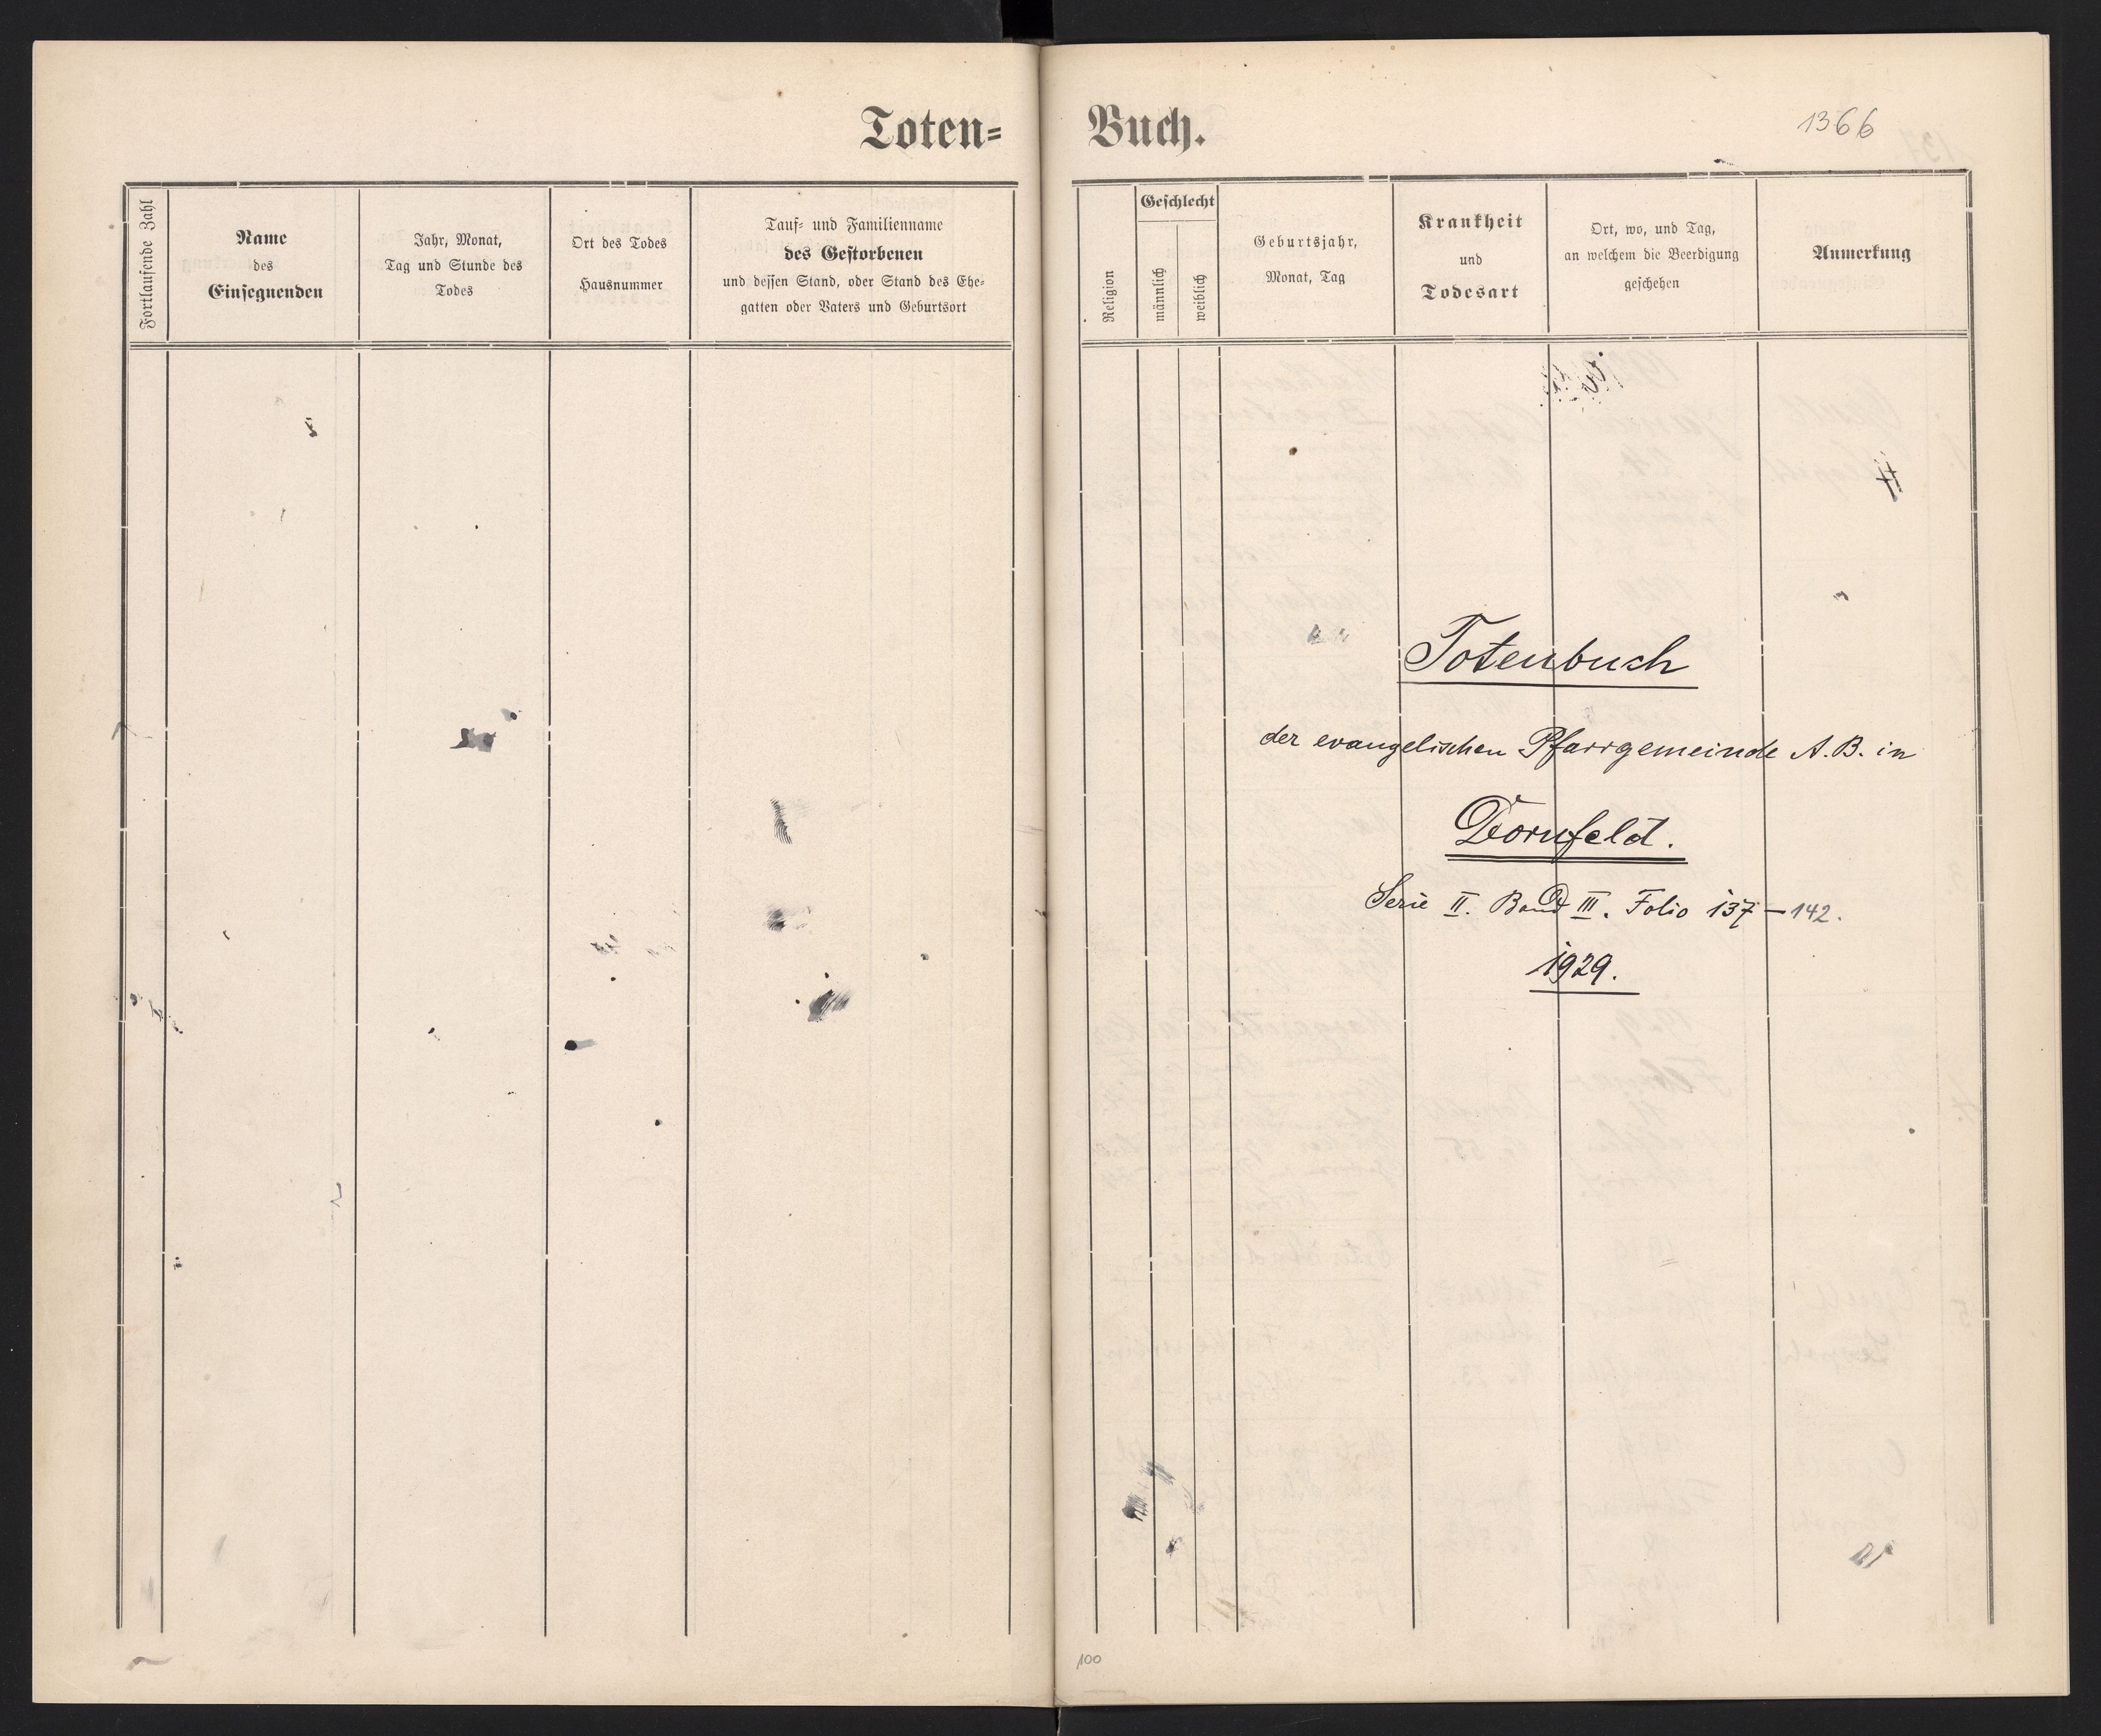 Toten= Buch.
1366
Fortlaufende Zahl
Name
des
Einsegnenden
Jahr, Monat,
Tag und Stunde des
Todes
Ort des Todes
Hausnummer
Tauf- und Familienname
des Gestorbenen
und dessen Stand, oder Stand des Ehe-
gatten oder Vaters und Geburtsort
Religion
Geschlecht
männlich
weiblich
Geburtsjahr,
Monat, Tag
Krankheit
und
Todesart
Ort, wo, und Tag,
an welchem die Beerdigung
geschehen
Anmerkung
Totenbuch
der evangelischen Pfarrgemeinde A. B. in
Dornfeld.
Serie II. Band III. Folio 137 – 142.
1929.
100